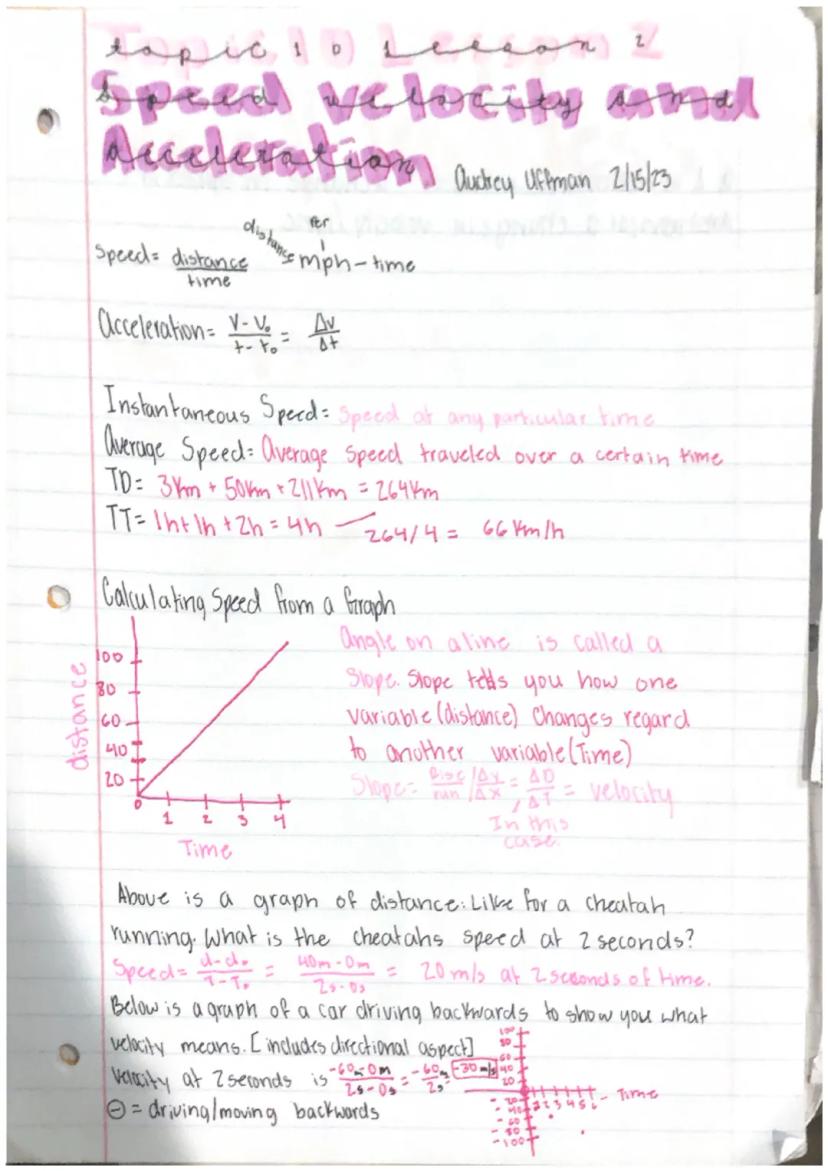 topic 10 Lesson 2
Speed velocity and
Acceleration
Audrey Uffman 2/15/23
Speed = distance/time distance per mph - time
Acceleration = V - V₀/t - t₀ = Δv/Δt
Instantaneous Speed = Speed at any particular time
Average Speed = Average Speed traveled over a certain time
TD = 3Km + 50Km + 211Km = 264Km
TT = 1h + 1h + 2h = 4h — 264/4 = 66 Km/h
Calculating Speed from a Graph
distance
100
80
60
40
20
0 1 2 3 4
Time
Angle on a line is called a
Slope. Slope tells you how one
variable (distance) changes regard
to another variable (Time)
Slope = Rise/run / Δy/Δx = ΔD/ΔT = velocity
In this
case.
Above is a graph of distance: Like for a cheatah
running. What is the cheatahs speed at 2 seconds?
Speed = d - d₀/T - T₀ = 40m - 0m/2s - 0s = 20 m/s at 2 seconds of time.
Below is a graph of a car driving backwards to show you what
velocity means. [includes directional aspect]
velocity at 2 seconds is -60m - 0m/2s - 0s = -60m/2s = -30 m/s
⊖ = driving/moving backwards
100
80
60
40
20
1 2 3 4 5 6 - Time
- 20
- 40
- 60
- 80
- 100